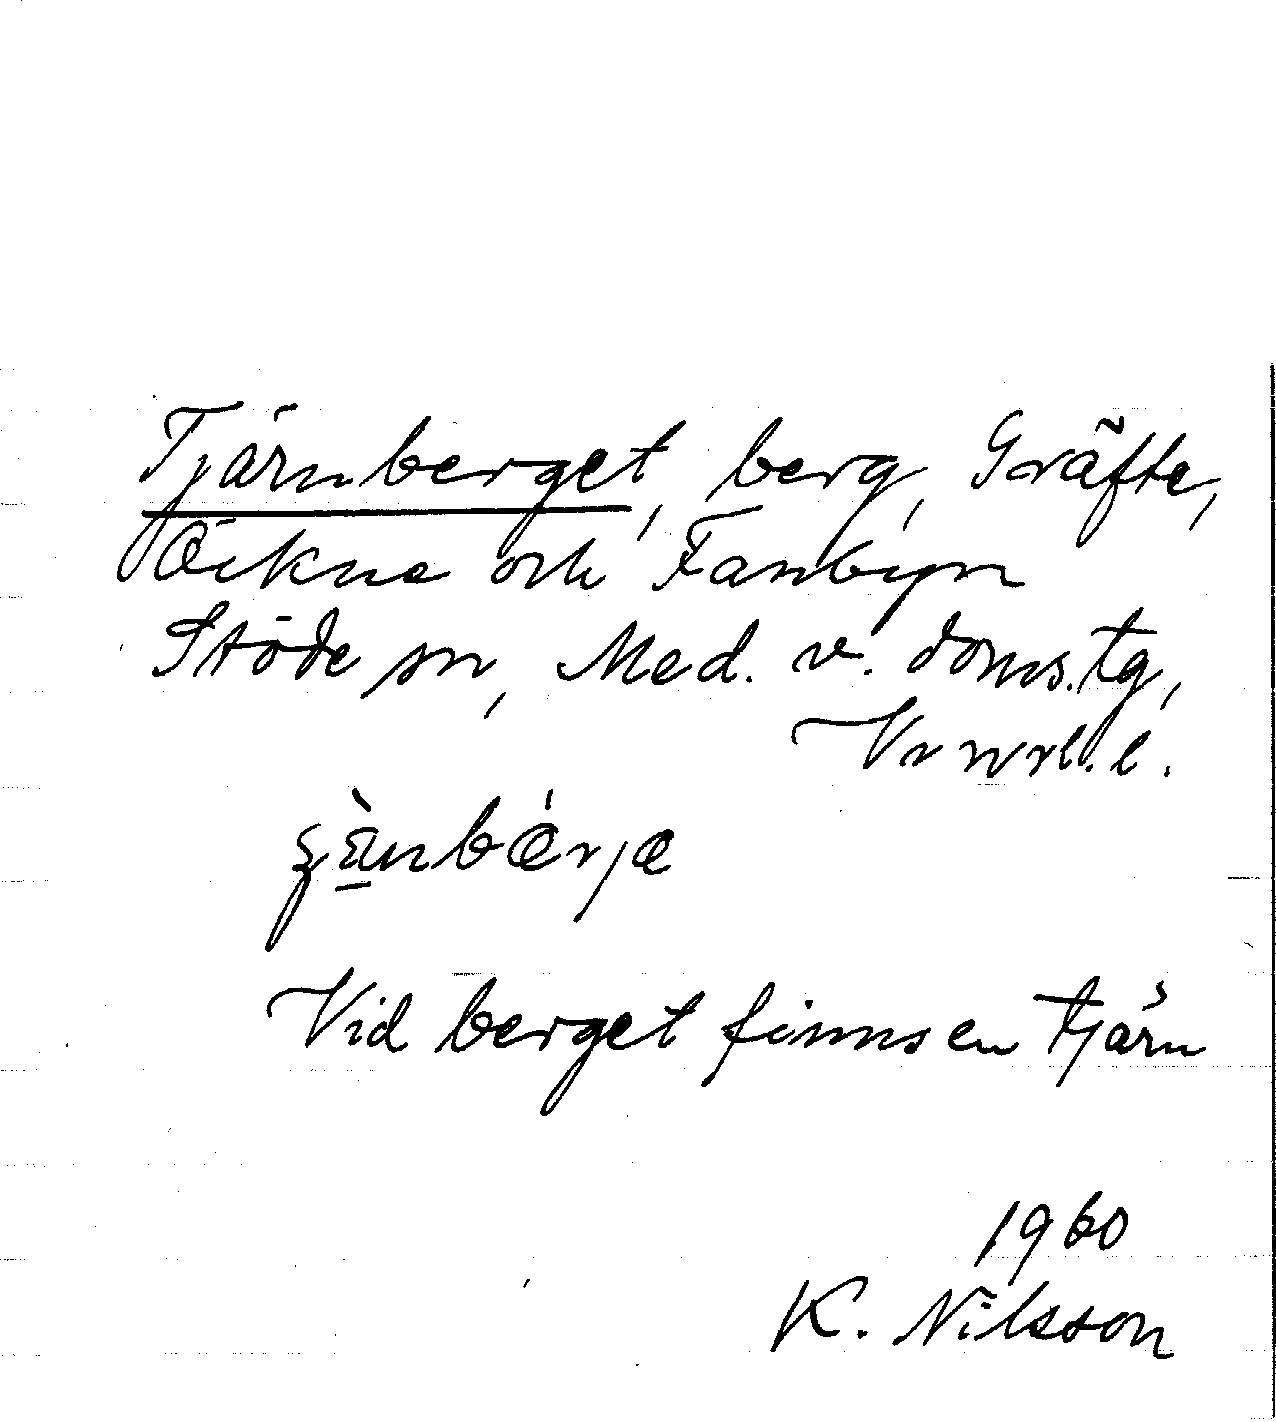 Tjärnberget, berg, Gräfte,
Öckne och Fanbyn
Stöde sn, Med. v. doms.tg,
Vr nrl. l.
bærjæ
Vid berget finns en tjärn
1960
K. Nilsson